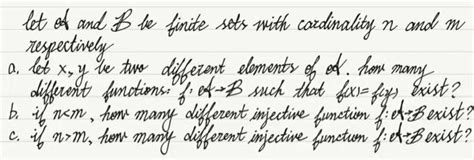 let A and B be finite sets with cardinality n and m
respectively
a. let x, y ve two different elements of A. how many
different functions: f: A→B such that f(x)=f(y) exist?
b. if n<m, how many different injective function f: A→B exist?
c. if n>m, how many different injective function f: A→B exist?